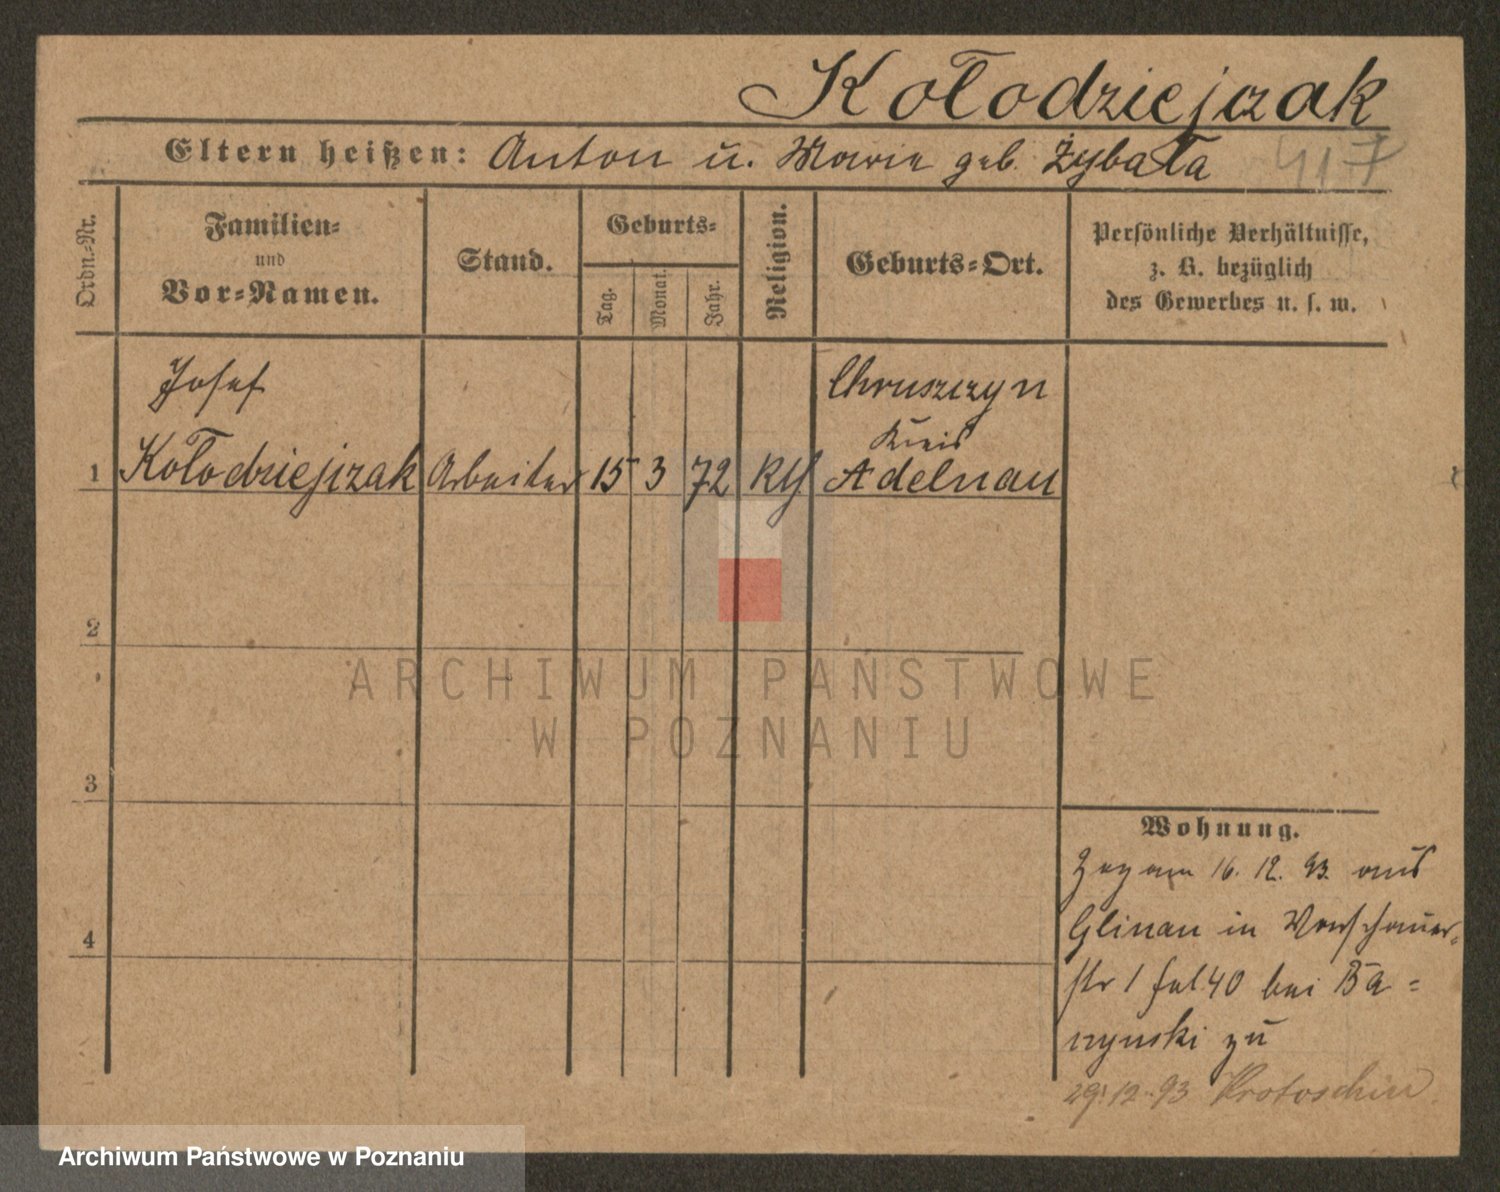 Kołodziejczak
Eltern heißen: Anton u. Marie geb. Żybała 417
Ordn.-Nr.
Familien-
und
Vor-Namen.
Stand.
Geburts-
Tag.
Monat.
Jahr.
Religion.
Geburts-Ort.
Persönliche Verhältnisse,
z. B. bezüglich
des Gewerbes u. s. w.
Josef
Chruszczyn
Kreis
1 Kołodziejczak Arbeiter 15 3 72 Kth Adelnau
2
3
4
Wohnung.
Zog am 16. 12. 93. aus
Glinau in Warschauer-
str 1 fol 40 bei Ba=
czynski zu
29. 12. 93 Krotoschin
ARCHIWUM PAŃSTWOWE
W POZNANIU
Archiwum Państwowe w Poznaniu